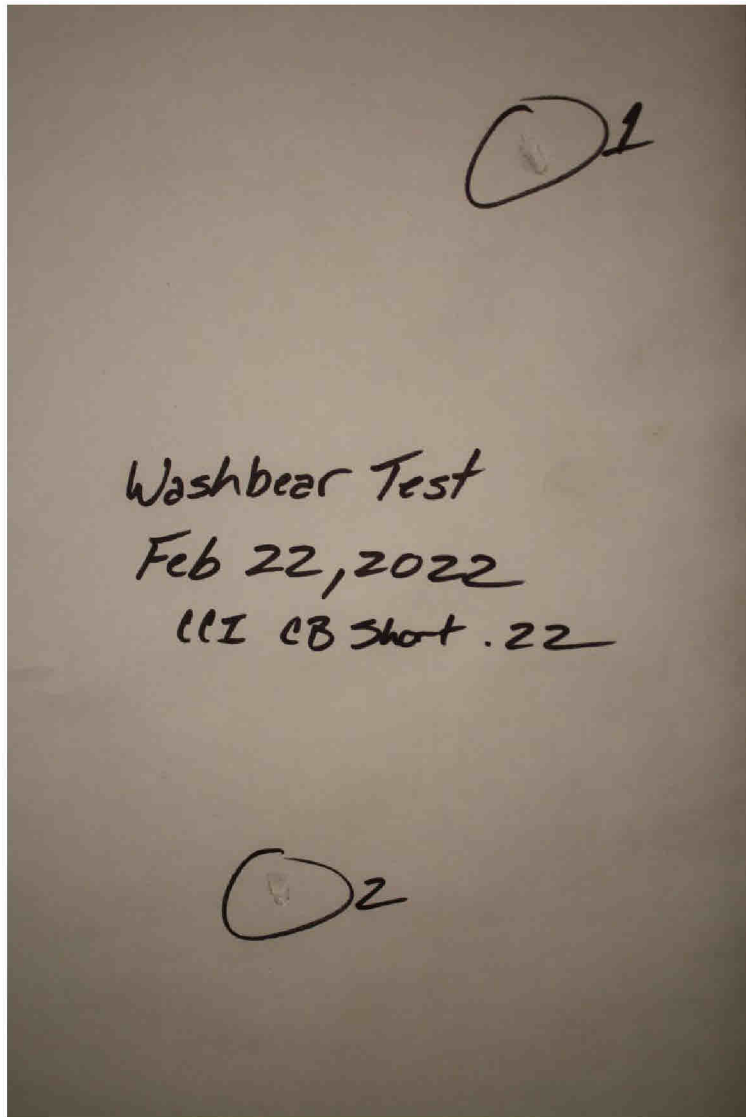 1
Washbear Test
Feb 22, 2022
CCI CB Short .22
2